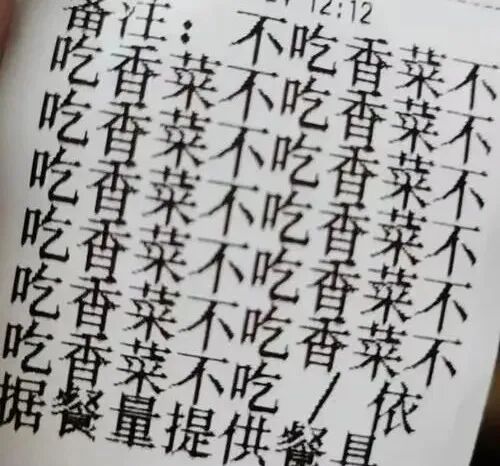 12:12
备注：不吃香菜不
吃香菜不吃香菜不
吃香菜不吃香菜不
吃香菜不吃香菜不
吃香菜不吃香菜不
吃香菜不吃香菜不
吃香菜不吃/依
据餐量提供餐具